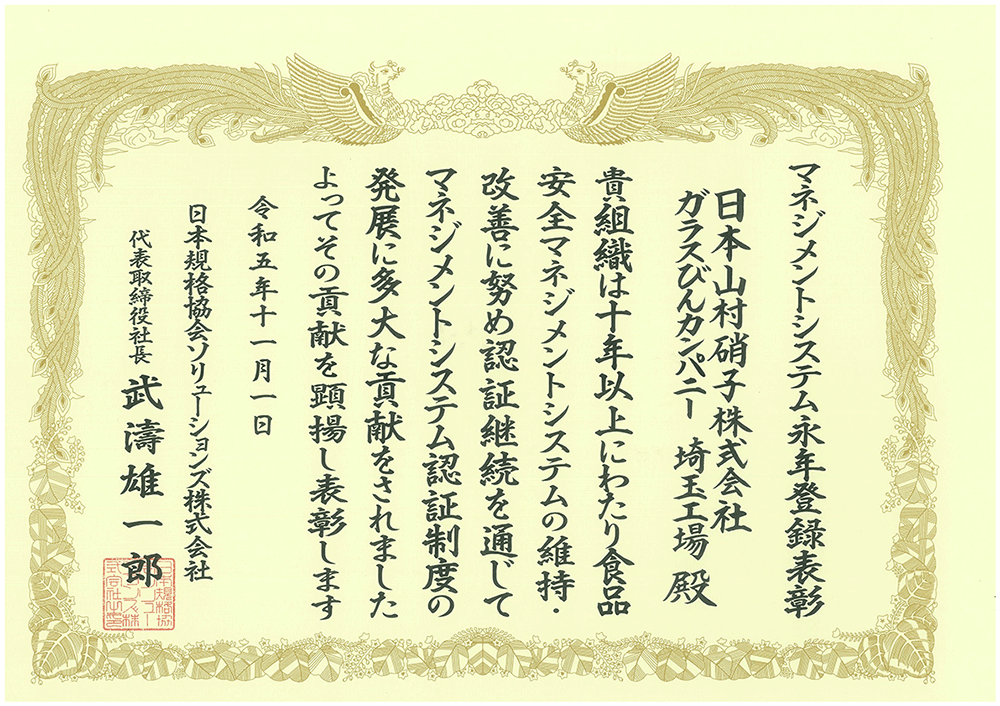 マネジメントシステム永年登録表彰
日本山村硝子株式会社
ガラスびんカンパニー 埼玉工場 殿
貴組織は十年以上にわたり食品
安全マネジメントシステムの維持・
改善に努め認証継続を通じて
マネジメントシステム認証制度の
発展に多大な貢献をされました
よってその貢献を顕揚し表彰します
令和五年十一月一日
日本規格協会ソリューションズ株式会社
代表取締役社長 武濤雄一郎